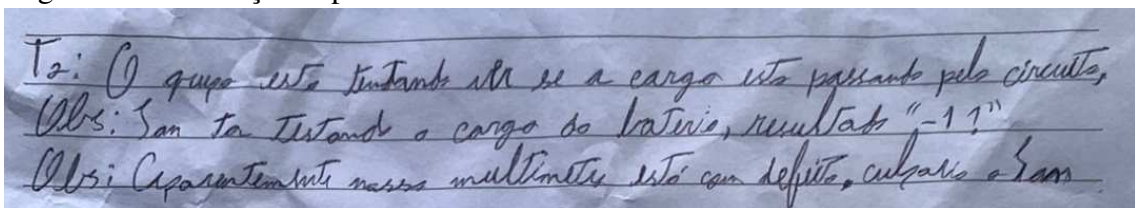 T2: O grupo esta tentando ver se a carga esta passando pelo circuito,
Obs: Sam ta Testando a carga da bateria, resultado "-1?"
Obs: Aparentemente nosso multimetro está com defeito, culpado o Sam